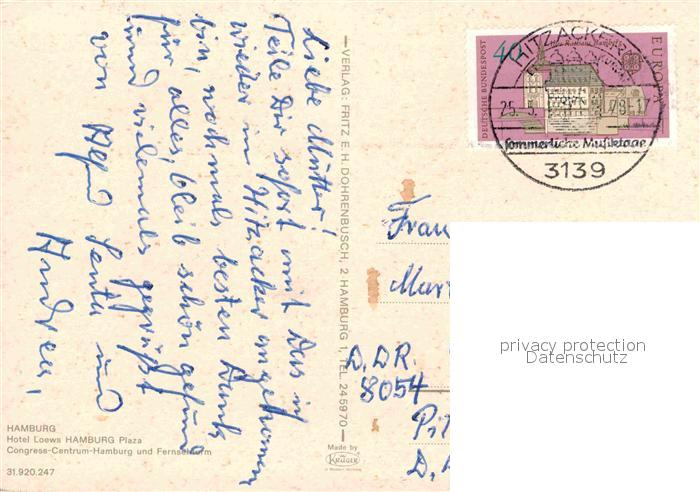 Liebe Mutter!
Teile Dir sofort mit Das ich
wieder in Hitzacker angekommen
bin, nochmals besten Dank
für alles bleib schön gesund
und vielmals gegrüßt
von Alfred Senta und
Andrea,
HAMBURG
Hotel Loews HAMBURG Plaza
Congress-Centrum-Hamburg und Fernsehturm
31.920.247
—VERLAG: FRITZ E. H. DOHRENBUSCH, 2 HAMBURG 1, TEL. 245970—
Made by
KRÜGER
DEUTSCHE BUNDESPOST
40
EUROPA
HITZACKER
25.-5. 78.-17
Sommerliche Musiktage
3139
Frau
D.DR.
8054
privacy protection
Datenschutz